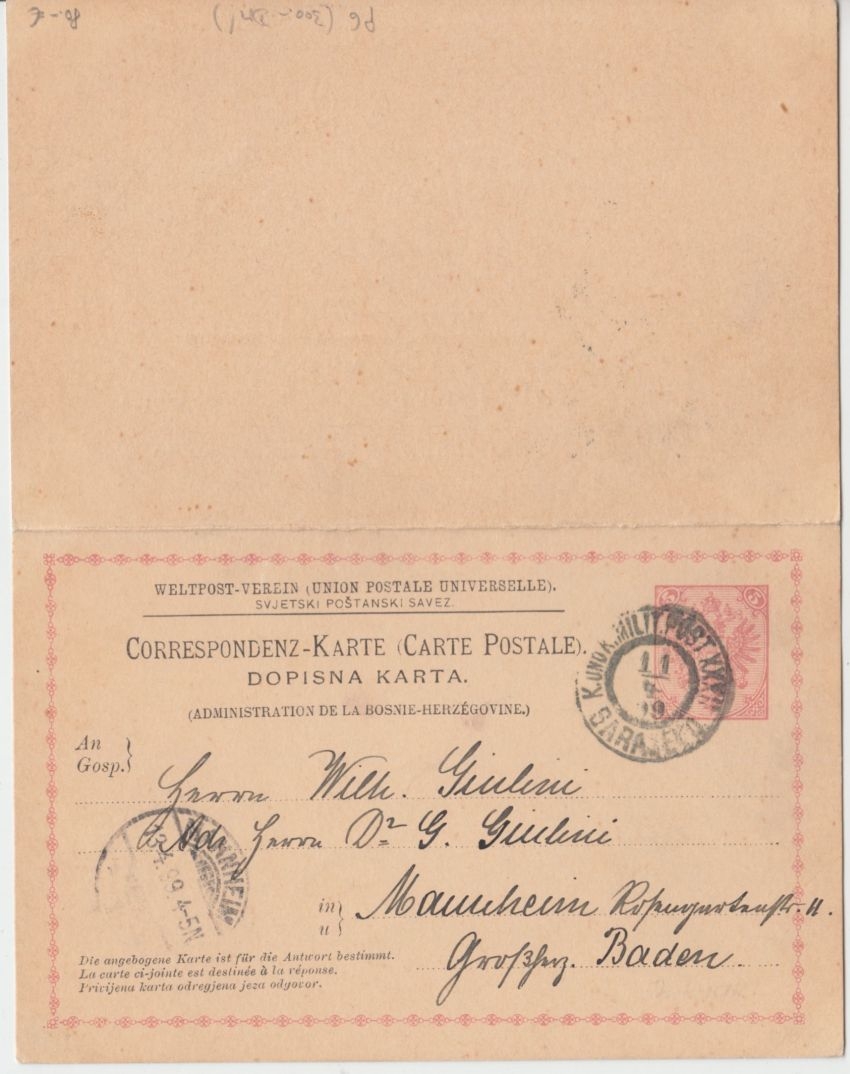 P6 (300.- DM)
80.- €
WELTPOST-VEREIN (UNION POSTALE UNIVERSELLE).
SVJETSKI POŠTANSKI SAVEZ.
CORRESPONDENZ-KARTE (CARTE POSTALE).
DOPISNA KARTA.
(ADMINISTRATION DE LA BOSNIE-HERZÉGOVINE.)
5 5
K. UND K. MILIT. POST XXXII
11
4
99
SARAJEVO
An
Gosp.
Herrn Wilh. Giulini
Adr Herrn Dr G. Giulini
MANNHEIM
4.99.4-5N
in
u
Mannheim Rosengartenstr. 11.
Großherz. Baden.
Die angebogene Karte ist für die Antwort bestimmt.
La carte ci-jointe est destinée à la réponse.
Privijena karta odregjena jeza odgovor.